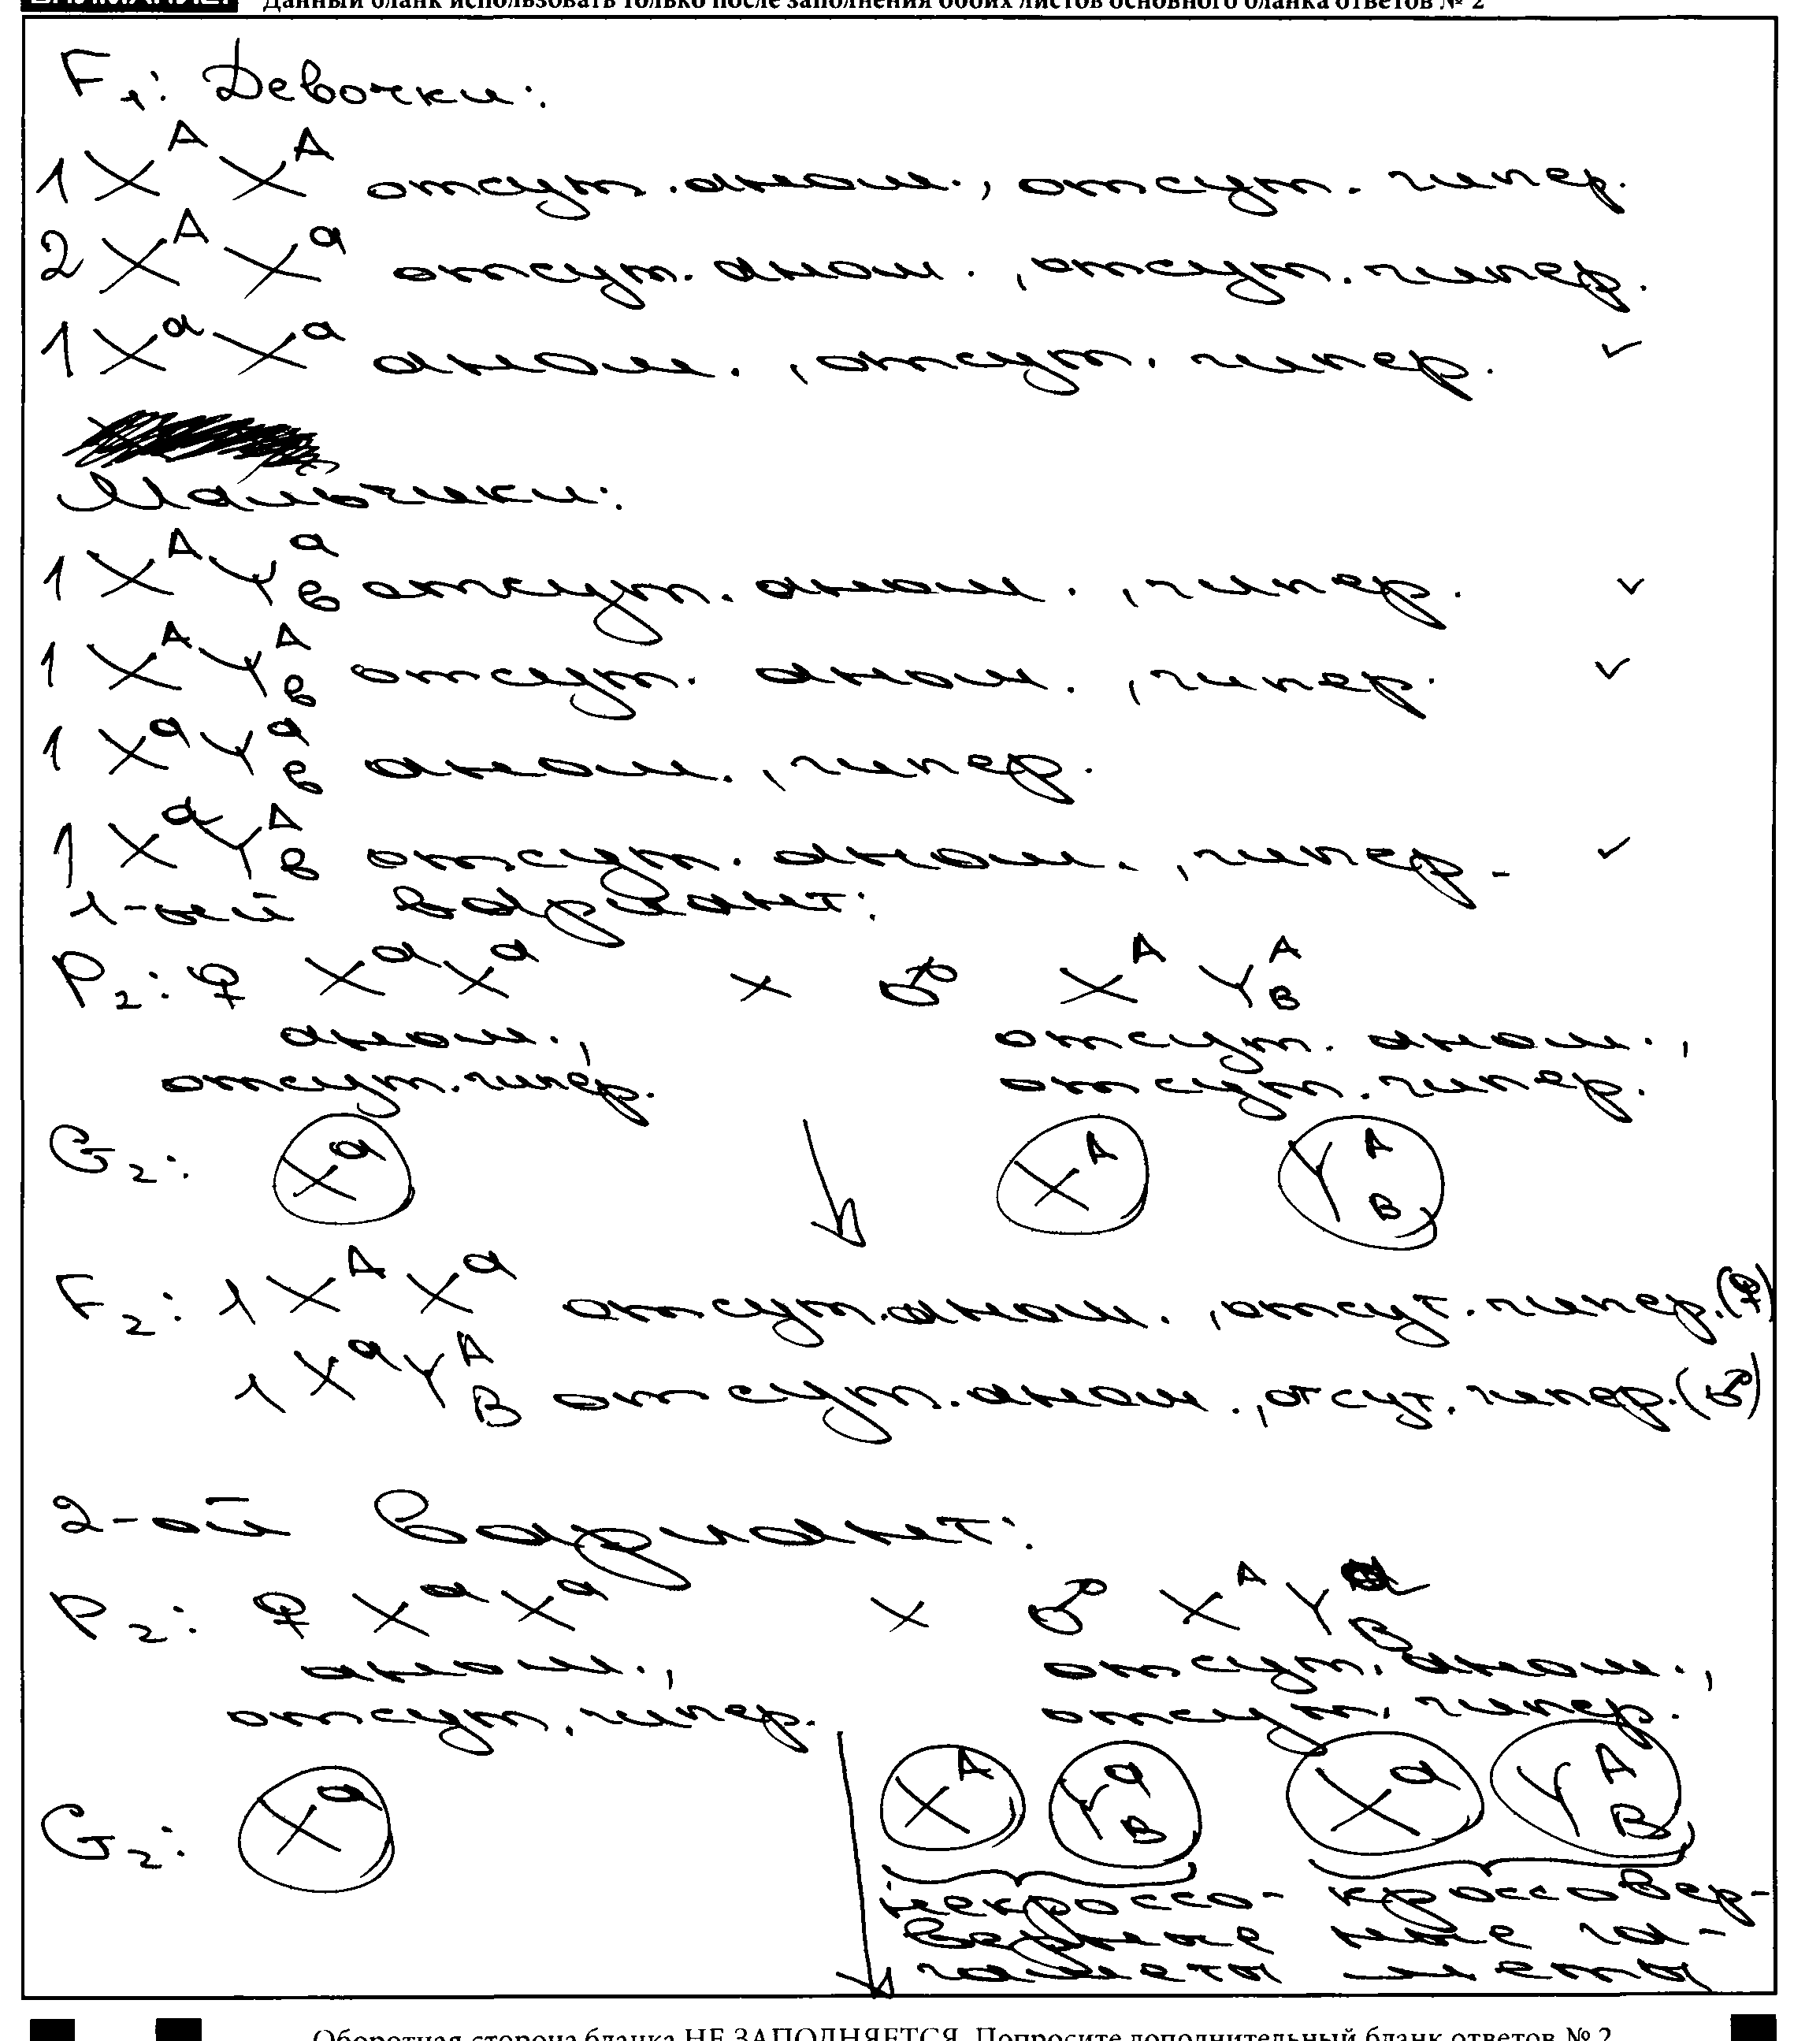 Данный бланк использовать только после заполнения обоих листов основного бланка ответов № 2
F₁: Девочки:
1 X^A X^A отсут. аном., отсут. гипер.
2 X^A X^a отсут. аном., отсут. гипер.
1 X^a X^a аном., отсут. гипер. ✓
Мальчики:
1 X^A Y^a_в отсут. аном., гипер. ✓
1 X^A Y^A_в отсут. аном., гипер. ✓
1 X^a Y^a_в аном., гипер.
1 X^a Y^A_в отсут. аном., гипер. ✓
1-ый вариант:
P₂: ♀ X^a X^a × ♂ X^A Y^A_B
аном., отсут. аном.,
отсут. гипер. отсут. гипер.
G₂: X^a X^A Y^A_B
F₂: 1 X^A X^a отсут. аном., отсут. гипер. (♀)
1 X^a Y^A_B отсут. аном., отсут. гипер. (♂)
2-ой вариант:
P₂: ♀ X^a X^a × ♂ X^A Y^a_B
аном., отсут. аном.,
отсут. гипер. отсут. гипер.
G₂: X^a X^A Y^a_B X^a Y^A_B
некроссо- кроссовер-
верные ные га-
гаметы меты
Оборотная сторона бланка НЕ ЗАПОЛНЯЕТСЯ. Попросите дополнительный бланк ответов № 2